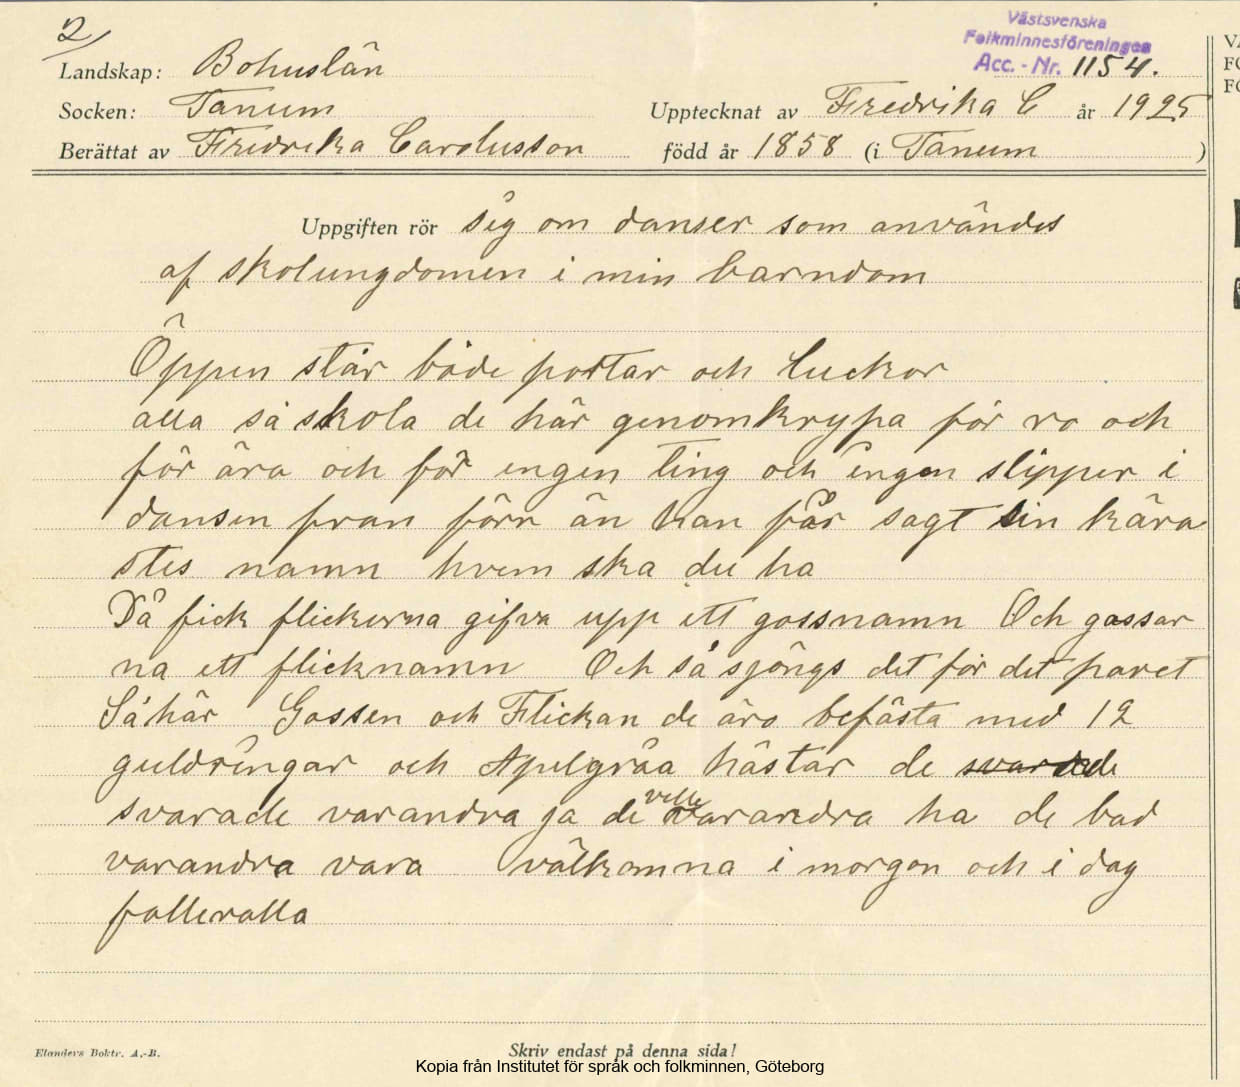 2/
Västsvenska
Folkminnesföreningen
Acc. - Nr. 1154.
Landskap: Bohuslän
Socken: Tanum
Upptecknat av Fredrika C år 1925
Berättat av Fredrika Carolusson
född år 1858 (i Tanum )
Uppgiften rör sig om danser som användes
af skolungdomen i min barndom
Öppen står både portar och luckor
alla så skola de här genomkrypa för ro och
för ära och för engen ting och engen slipper i
dansen fran förr än han får sagt sin kära
stes namn hvem ska du ha
Då fick flickerna gifva upp ett gossnamn Och gossar
na ett flicknamn Och så sjöngs det för det paret
Så här Gossen och Flickan de äro befästa med 12
guldringar och Apelgråa hästar de svarade
svarade varandra ja de ville varandra ha de bad
varandra vara välkomna i morgon och i dag
falleralla
Elanders Boktr. A.-B.
Skriv endast på denna sida!
Kopia från Institutet för språk och folkminnen, Göteborg
VÄ
FO
FÖ